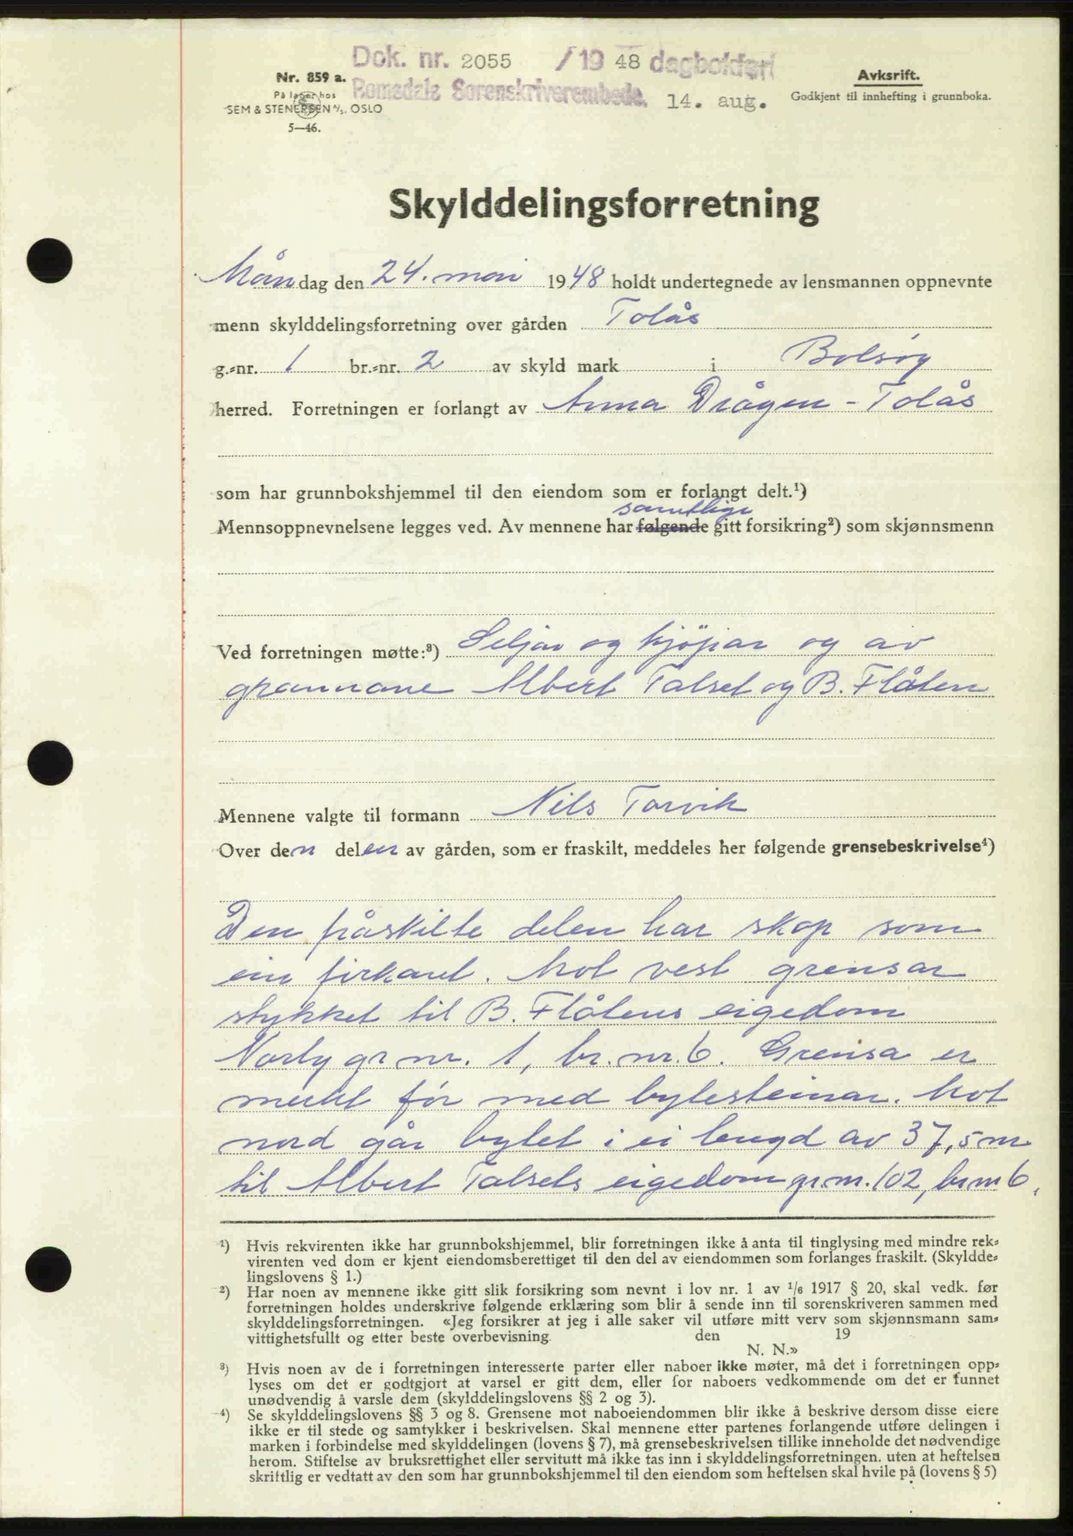 Dok. nr. 2055 / 19 48 dagbokført
Romsdals Sorenskriverembede. 14. aug.
Nr. 859 a.
På lager hos
SEM & STENERSEN A/S, OSLO
5—46.
Avskrift.
Godkjent til innhefting i grunnboka.
Skylddelingsforretning
Måndag den 24. mai 1948 holdt undertegnede av lensmannen oppnevnte
menn skylddelingsforretning over gården Tolås
g.-nr. 1 br.-nr. 2 av skyld mark i Bolsøy
herred. Forretningen er forlangt av Anna Drågen - Tolås
som har grunnbokshjemmel til den eiendom som er forlangt delt.¹)
samtlige
Mennsoppnevnelsene legges ved. Av mennene har følgende gitt forsikring²) som skjønnsmenn
Ved forretningen møtte:³) Seljar og kjøpar og av
grannane Albert Talset og B. Flåten
Mennene valgte til formann Nils Torvik
Over den delen av gården, som er fraskilt, meddeles her følgende grensebeskrivelse⁴)
Den fråskilte delen har skap som
ein firkant. Mot vest grensar
stykket til B. Flåtens eigedom
Norby gr nr. 1, br. nr. 6. Grensa er
merkt før med bytesteinar. Mot
nord går bytet i ei lengd av 37,5 m
til Albert Talsets eigedom gr.nr. 102, br nr 6,
¹) Hvis rekvirenten ikke har grunnbokshjemmel, blir forretningen ikke å anta til tinglysing med mindre rek-
virenten ved dom er kjent eiendomsberettiget til den del av eiendommen som forlanges fraskilt. (Skyldde-
lingslovens § 1.)
²) Har noen av mennene ikke gitt slik forsikring som nevnt i lov nr. 1 av 1/6 1917 § 20, skal vedk. før
forretningen holdes underskrive følgende erklæring som blir å sende inn til sorenskriveren sammen med
skylddelingsforretningen. «Jeg forsikrer at jeg i alle saker vil utføre mitt verv som skjønnsmann sam-
vittighetsfullt og etter beste overbevisning den 19
N. N.»
³) Hvis noen av de i forretningen interesserte parter eller naboer ikke møter, må det i forretningen opp-
lyses om det er godtgjort at varsel er gitt dem, eller for naboers vedkommende om det er funnet
unødvendig å varsle dem (skylddelingslovens §§ 2 og 3).
⁴) Se skylddelingslovens §§ 3 og 8. Grensene mot naboeiendommen blir ikke å beskrive dersom disse eiere
ikke er til stede og samtykker i beskrivelsen. Skal mennene etter partenes forlangende utføre delingen i
marken i forbindelse med skylddelingen (lovens § 7), må grensebeskrivelsen tillike inneholde det nødvendige
herom. Stiftelse av bruksrettighet eller servitutt må ikke tas inn i skylddelingsforretningen. uten at heftelsen
skriftlig er vedtatt av den som har grunnbokshjemmel til den eiendom som heftelsen skal hvile på (lovens § 5)